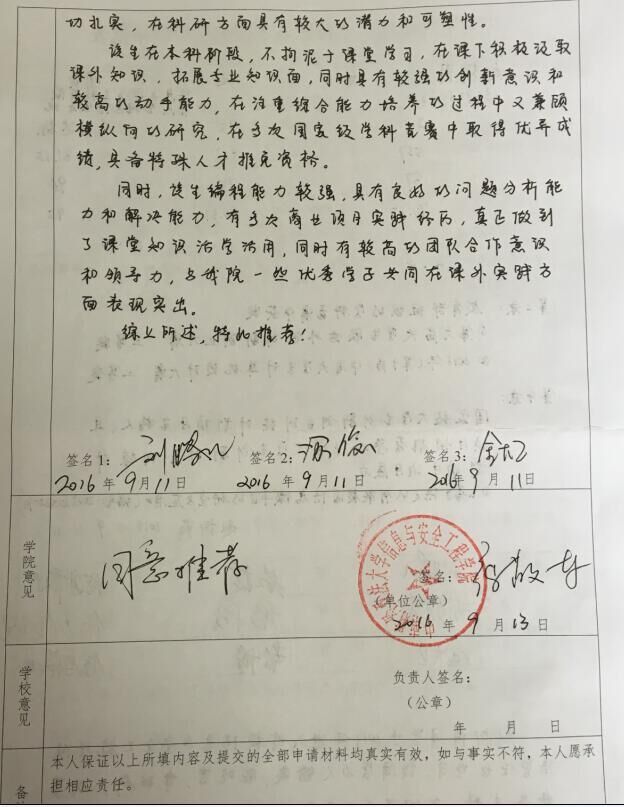 功扎实,在科研方面具有较大的潜力和可塑性。
该生在本科阶段,不拘泥于课堂学习,在课下积极汲取
课外知识,拓展专业知识面,同时具有较强的创新意识和
较高的动手能力,在注重综合能力培养的过程中又兼顾
横纵向的研究,在多次国家级学科竞赛中取得优异成
绩,具备特殊人才推免资格。
同时,该生编程能力较强,具有良好的问题分析能
力和解决能力,有多次商业项目实践经历,真正做到
了课堂知识活学活用,同时有较高的团队合作意识
和领导力,与我院一些优秀学子共同在课外实践方
面表现突出。
综上所述,特此推荐!
签名1: 签名2: 签名3:
2016年9月11日 2016年9月11日 2016年9月11日
学院意见
同意推荐
签名:
(单位公章)
2016年9月13日
学校意见
负责人签名:
(公章)
年 月 日
本人保证以上所填内容及提交的全部申请材料均真实有效,如与事实不符,本人愿承
担相应责任。